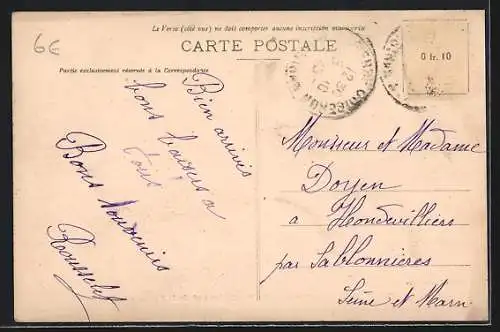 66
Le Verso (côté vue) ne doit comporter aucune inscription manuscrite
CARTE POSTALE
Partie exclusivement réservée à la Correspondance
0 fr. 10
Bien arrivés
bons baisers a
tous
Bons Souvenirs
Rousselet
Monsieur et Madame
Doyen
a Hondevilliers
par Sablonnieres
Seine et Marn